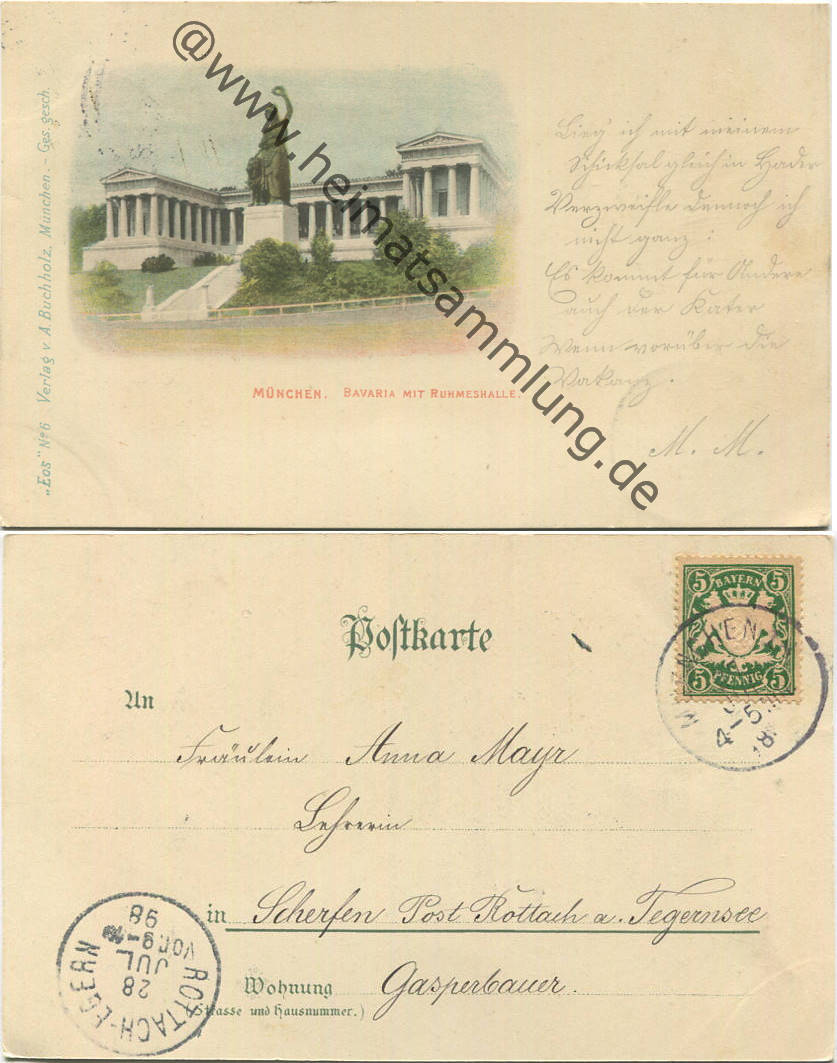 „Eos" No 6 Verlag v. A. Buchholz, München. - Ges. gesch.
@www.heimatsammlung.de
MÜNCHEN. BAVARIA MIT RUHMESHALLE.
Lieg' ich mit meinem
Schicksal gleich in Hader
Verzweifle dennoch ich
nicht ganz:
Es kommt für Andere
auch der Kater
Wenn vorüber die
Vakanz.
M. M.
Postkarte
5 BAYERN 5
5 PFENNIG 5
MUENCHEN
An
Fräulein Anna Mayr
Lehrerin
in Scherfen Post Rottach a. Tegernsee
Wohnung Gasperbauer.
(Strasse und Hausnummer.)
ROTTACH-EGERN
28
JUL
VOR 9-10
98